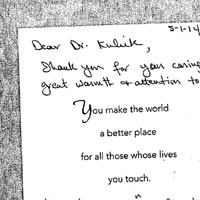 3-1-14
Dear Dr. Kulick,
Thank you for your caring
great warmth & attention to
You make the world
a better place
for all those whose lives
you touch.